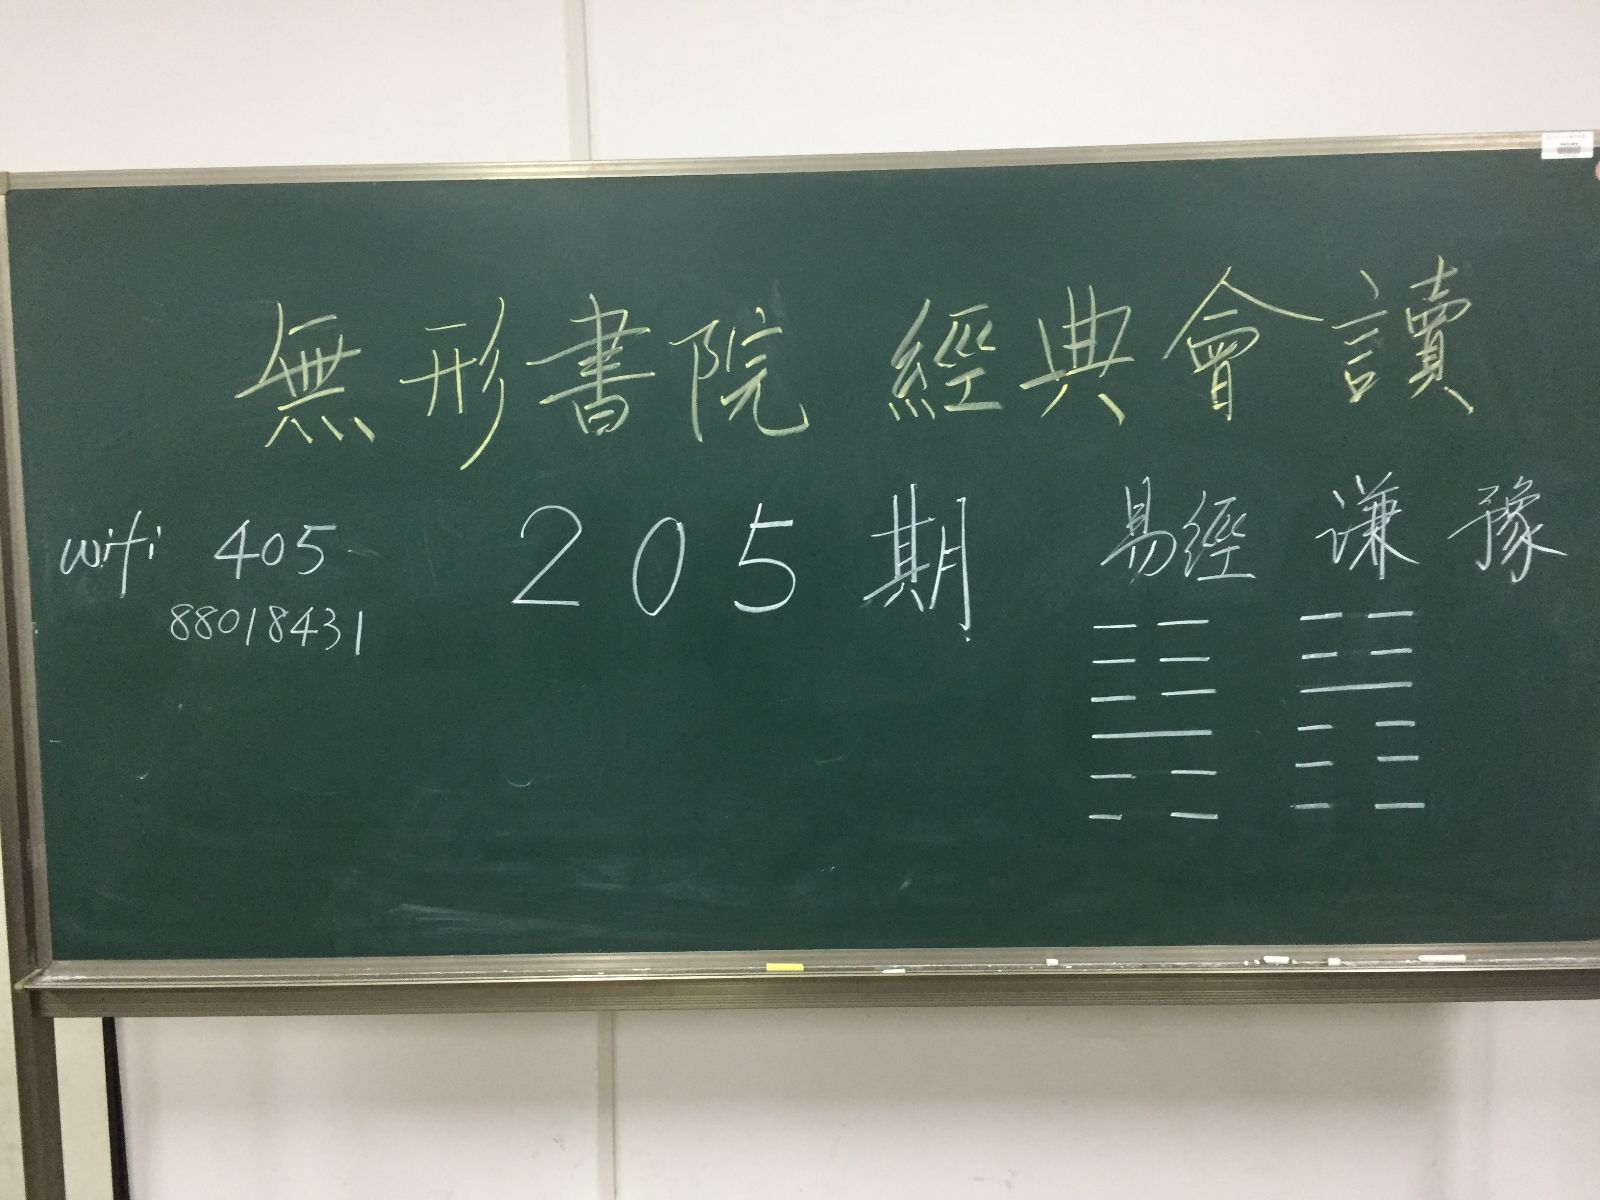 無形書院 經典會讀
wifi 405
88018431
205期
易經 谦 豫